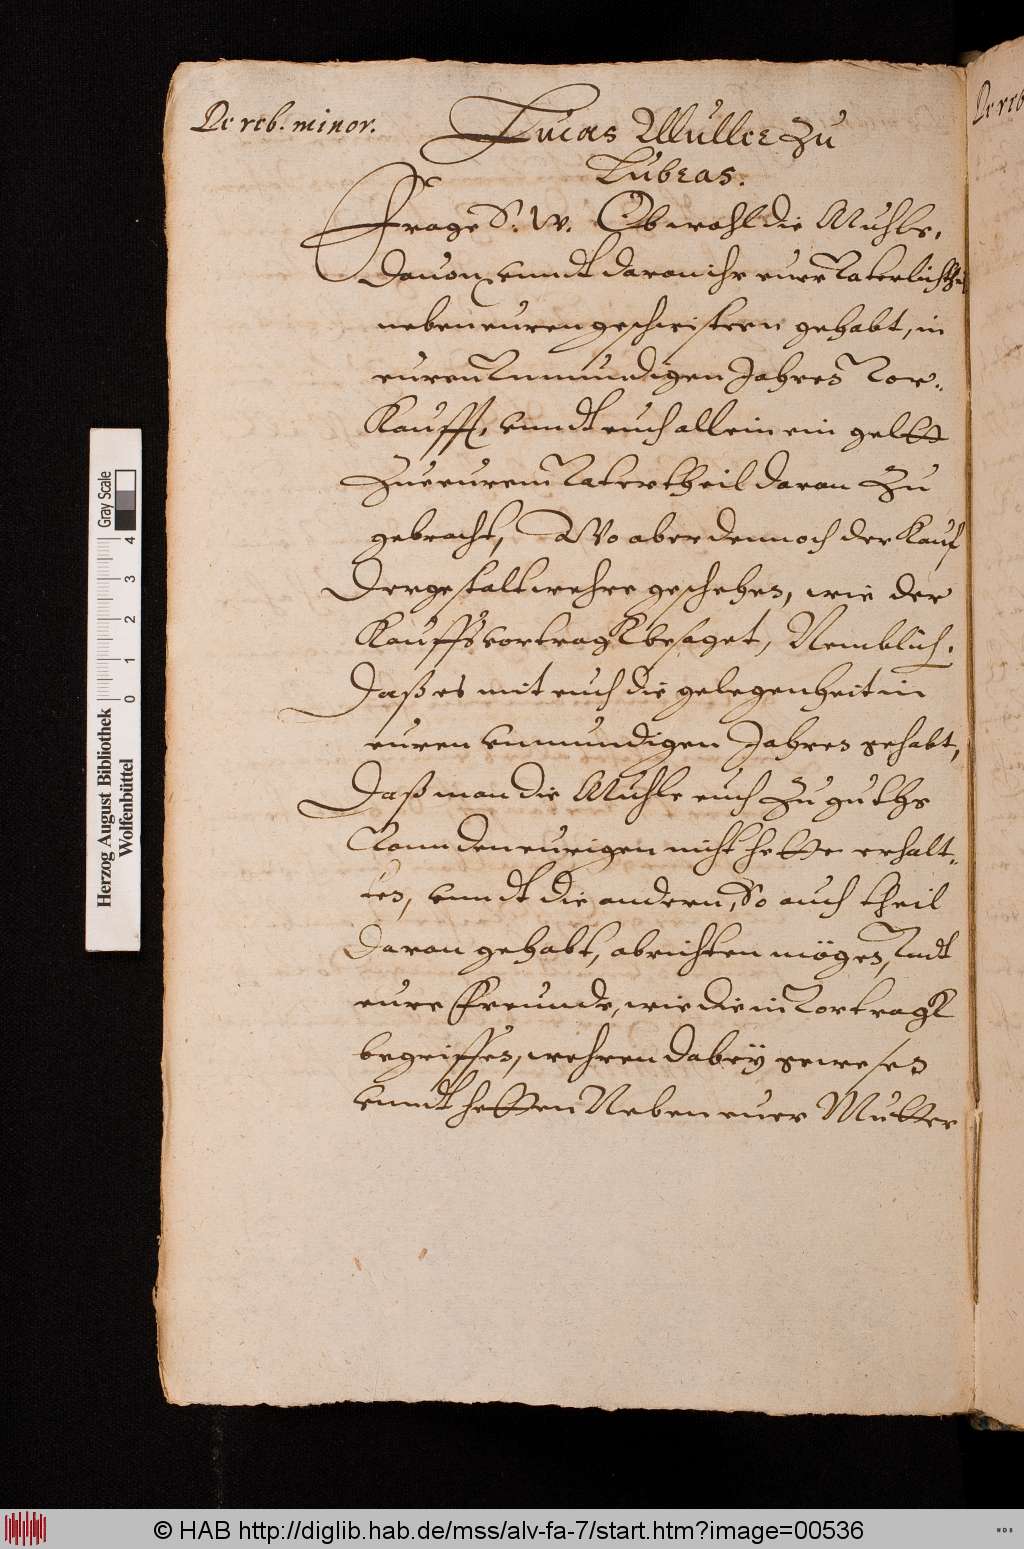 De reb. minor.
Lucas Muller zu
Lubras.
Frage S. W. Ob wohl die Muhle,
Dauon vnndt daran ihr euer Vaterlich theil
neben euren geschwistern gehabt, in
euren Vnmundigen Jahren Vor-
Kaufft, vnndt euch allein ein geltt
Zue eurem Vatertheil daran Zu
gebracht, Wo aber dennoch der Kauf
Dergestalt wehre geschehen, wie der
Kauffsvortragk besaget, Nemblich.
Daß es mit euch die gelegenheit in
euren vnmundigen Jahren gehabt,
Daß man die Muhle euch Zu guthe
Vonn den eurigen nicht hette erhalt-
ten, vnndt die andern, So auch theil
Daran gehabt, abrichten mögen, Vndt
eure Freunde, wie die in Vortragk
begriffen, wehren dabey gewesen
vnndt hetten Neben euer Mutter
De reb
Herzog August Bibliothek
Wolfenbüttel
0 1 2 3 4
Gray Scale
© HAB http://diglib.hab.de/mss/alv-fa-7/start.htm?image=00536